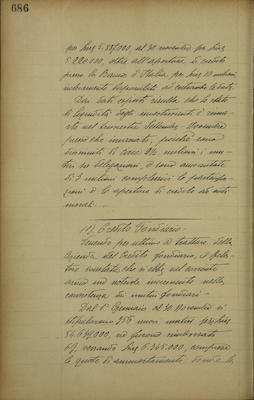 686
per Lire 5.587.000 al 30 novembre per Lire
5.220.000, oltre all'apertura di credito
presso la Banca d'Italia per Lire 10 milioni
interamente disponibili ad entrambe le date.
Dai dati esposti risulta che lo stato
di liquidità degli investimenti è rimasto
nel bimestre Settembre - Novembre
pressoché invariato, poiché sono
diminuiti di circa 2½ milioni i
e sono aumentate
di 3 milioni complessivi le partecipazioni
e le aperture di credito ad enti
morali. -
11) Credito Fondiario.
Venendo per ultimo a trattare della
Azienda del Credito fondiario, il
che si ebbe nel corrente
anno un notevole incremento nella
consistenza dei mutui fondiari -
Dal 1° Gennaio al 30 Novembre si
stipularono 256 nuovi mutui per Lire
54.639.000, ne furono rimborsati
69, versando Lire 6.345.000, comprese
le quote di ammortamento.